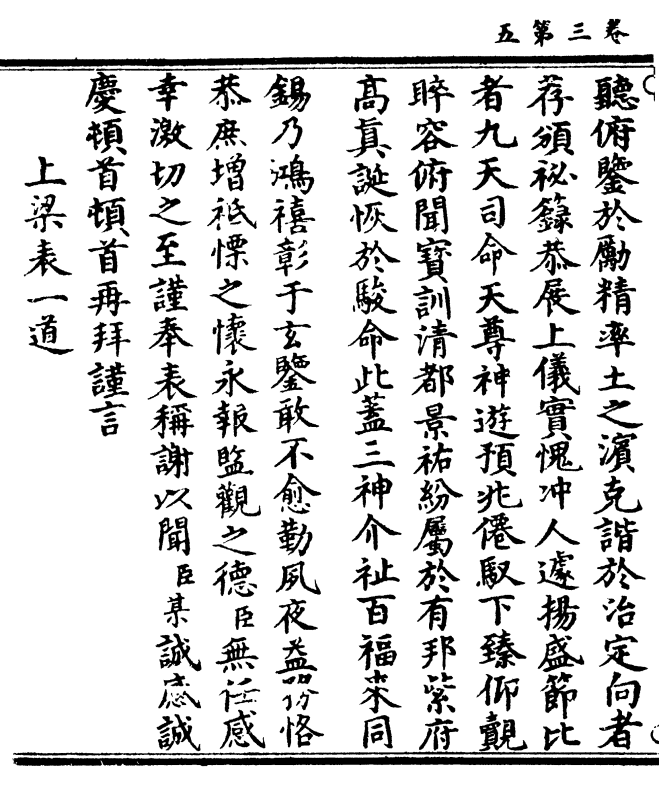 卷三第五
聽俯鑒於勵精率土之濱克諧於治定向者
荐頒祕籙恭展上儀實愧冲人遽揚盛節比
者九天司命天尊神遊預兆僊馭下臻仰覿
睟容俯聞寳訓清都景祐紛屬於有邦紫府
高眞誕恢於駿命此蓋三神介祉百福來同
錫乃鴻禧彰于玄鑒敢不愈勤夙夜益恪
恭庶增祗慄之懷永報監觀之德臣無任感
幸激切之至謹奉表稱謝以聞臣某誠感誠
慶頓首頓首再拜謹言
上梁表一道